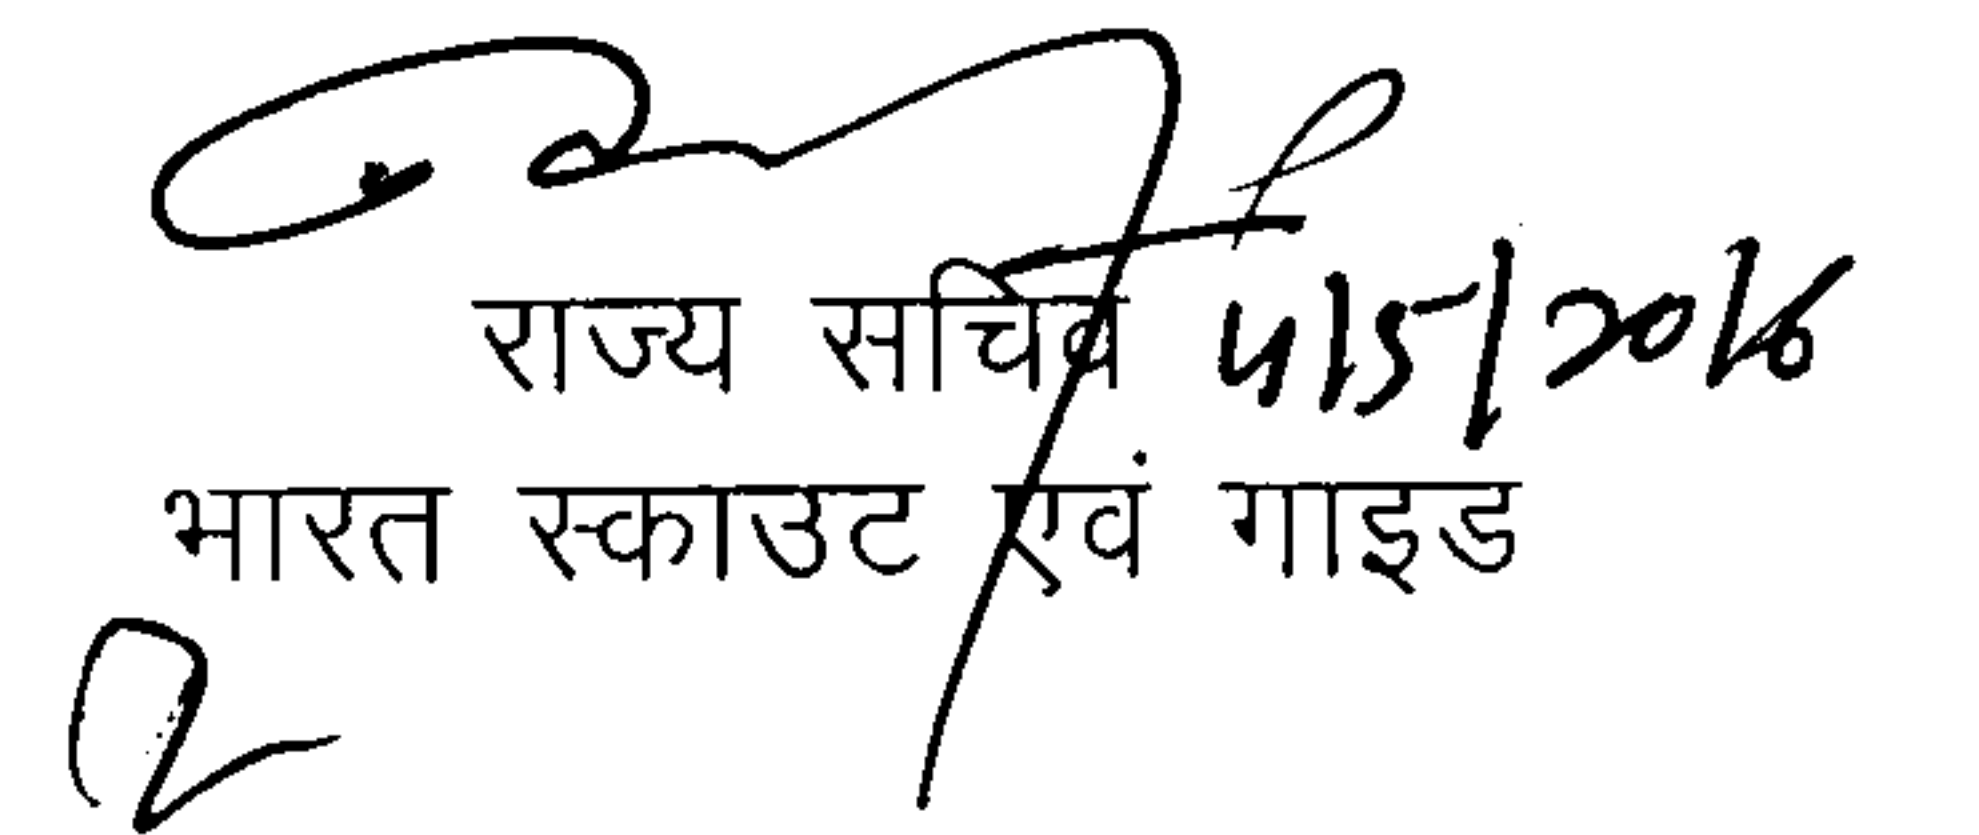 राज्य सचिव 4/5/2016
भारत स्काउट एवं गाइड